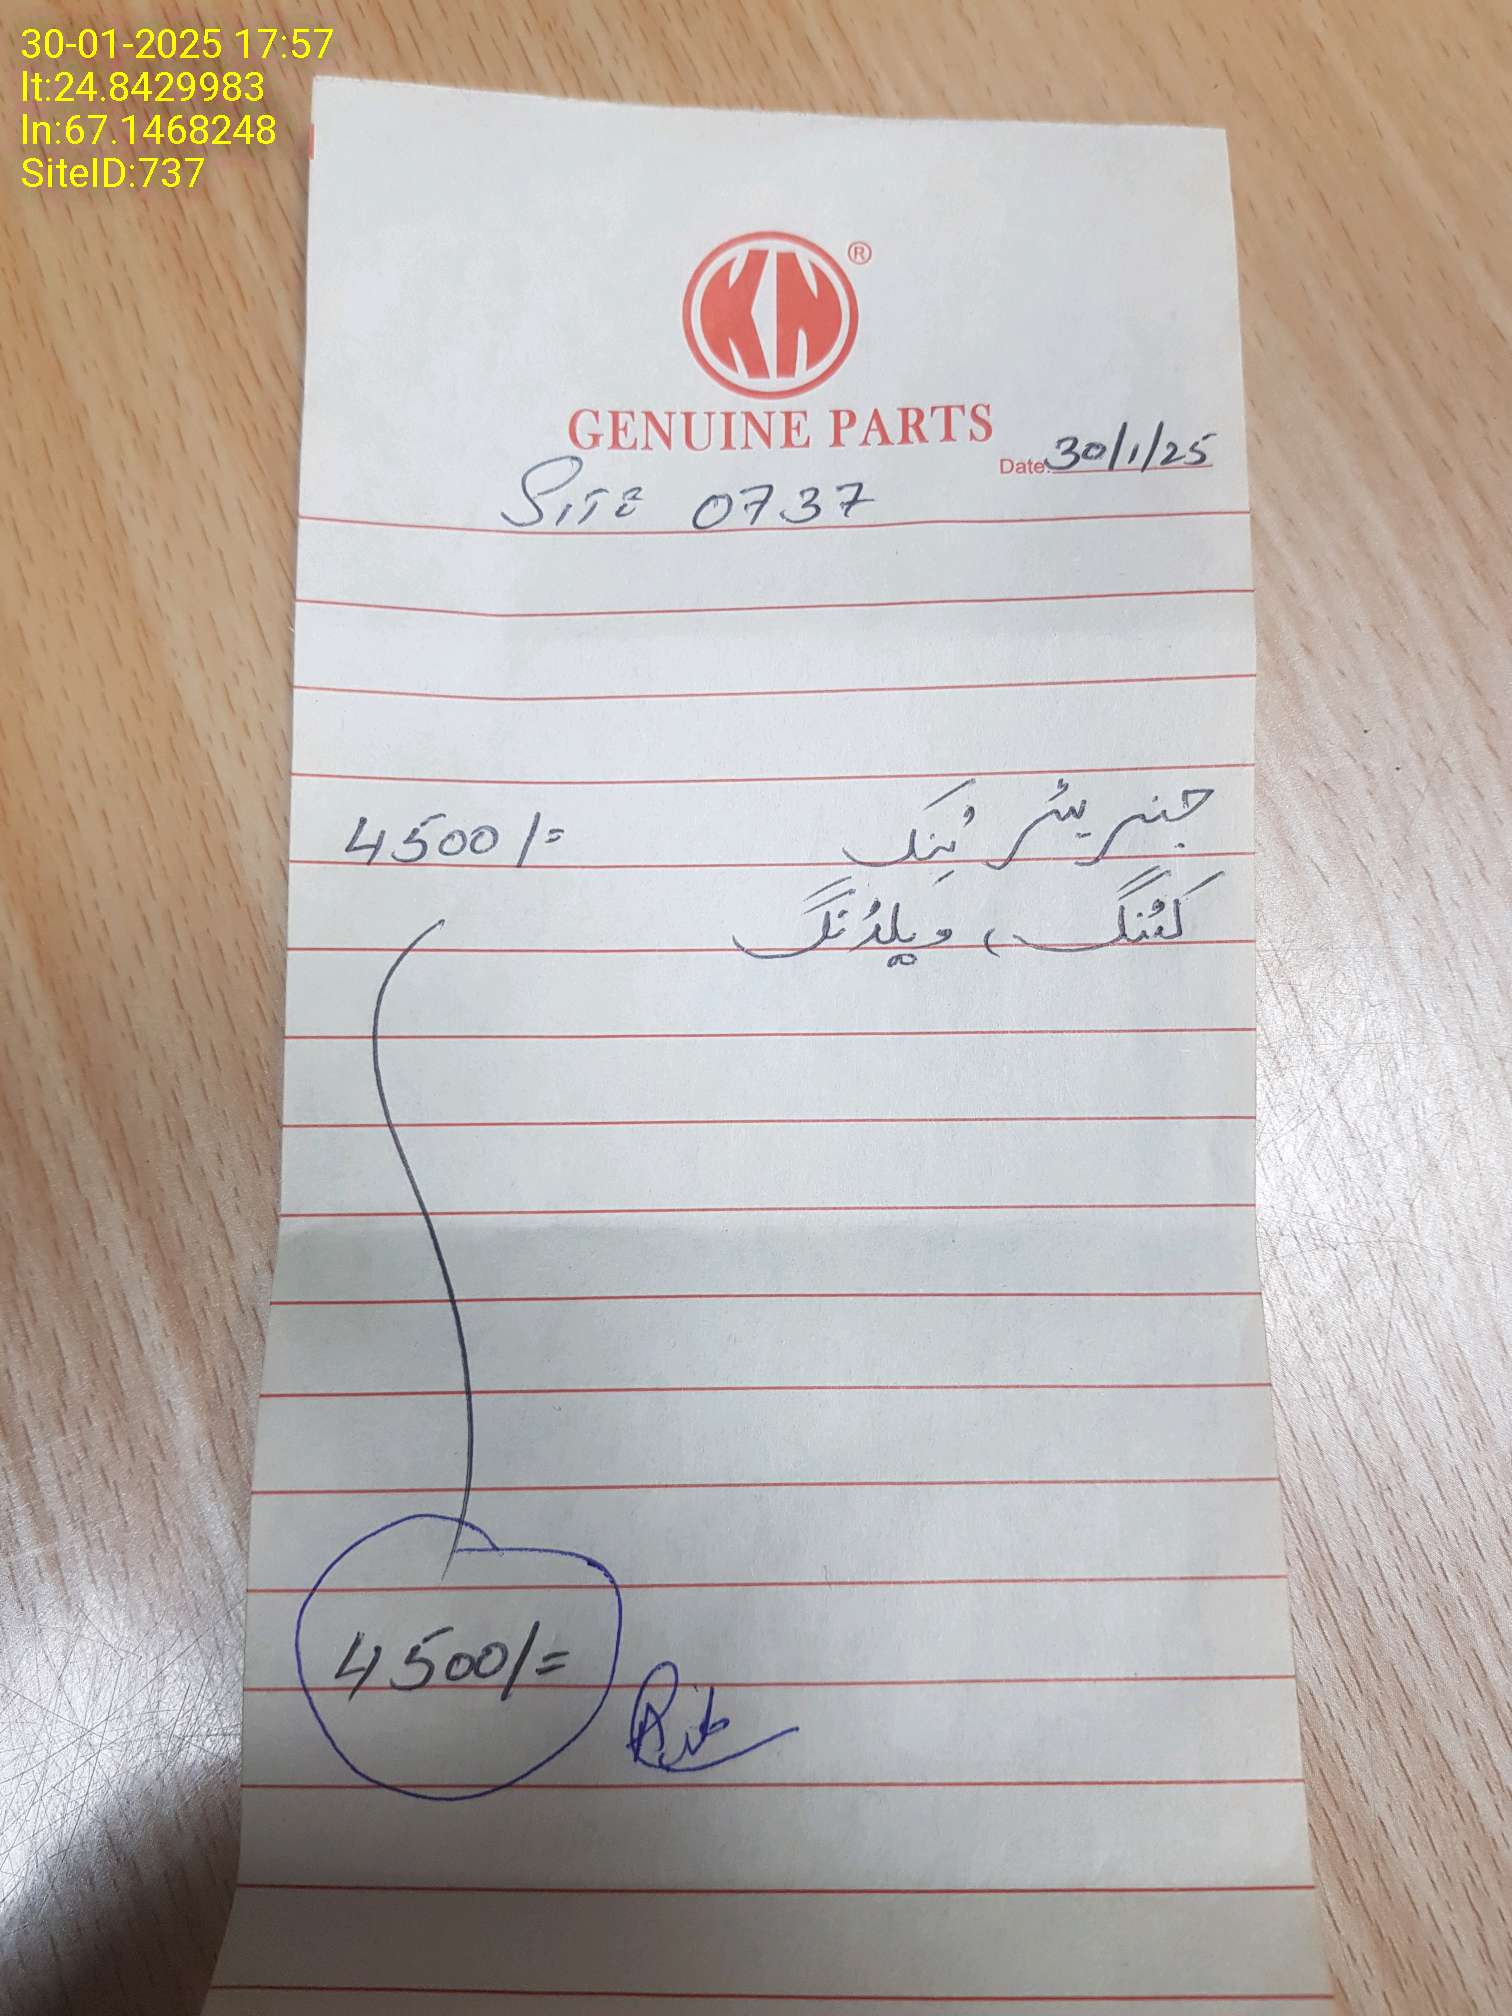 30-01-2025 17:57
lt:24.8429983
ln:67.1468248
SiteID:737
KN ®
GENUINE PARTS
Date: 30/1/25
SITE 0737
جنریٹر ٹینک 4500/=
کٹنگ، ویلڈنگ
4500/=